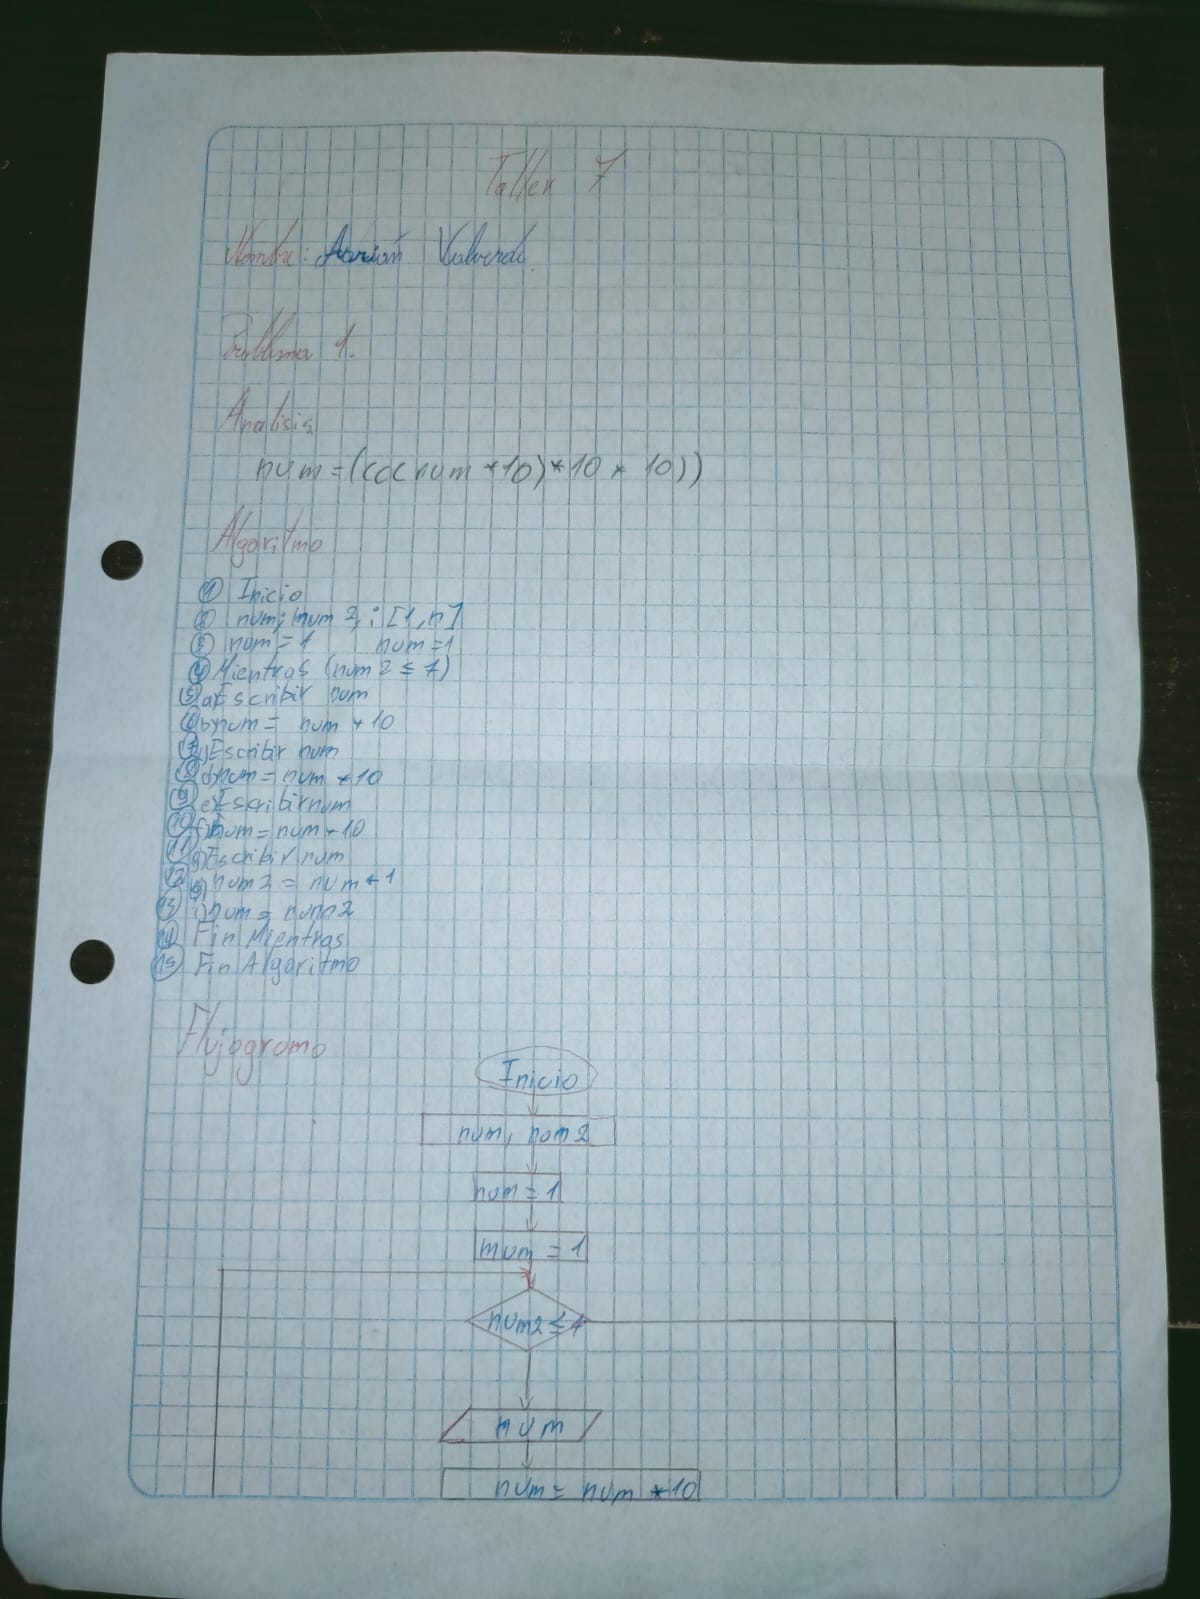 Taller 7
Nombre: Adrián Valverde.
Problema 1.
Analisis
num=((((num *10)*10 * 10))
Algoritmo
1 Inicio
2 num, num 2, i [1,n]
3 num = 1 num = 1
4 Mientras (num 2 ≤ 7)
5 a) Escribir num
6 b) num = num * 10
7 c) Escribir num
8 d) num = num * 10
9 e) Escribir num
10 f) num = num * 10
11 g) Escribir num
12 h) num 2 = num + 1
13 i) num = num 2
14 Fin Mientras
15 Fin Algoritmo
Flujogramo
Inicio
num, num 2
num = 1
num = 1
num2 ≤ 7
num
num = num * 10